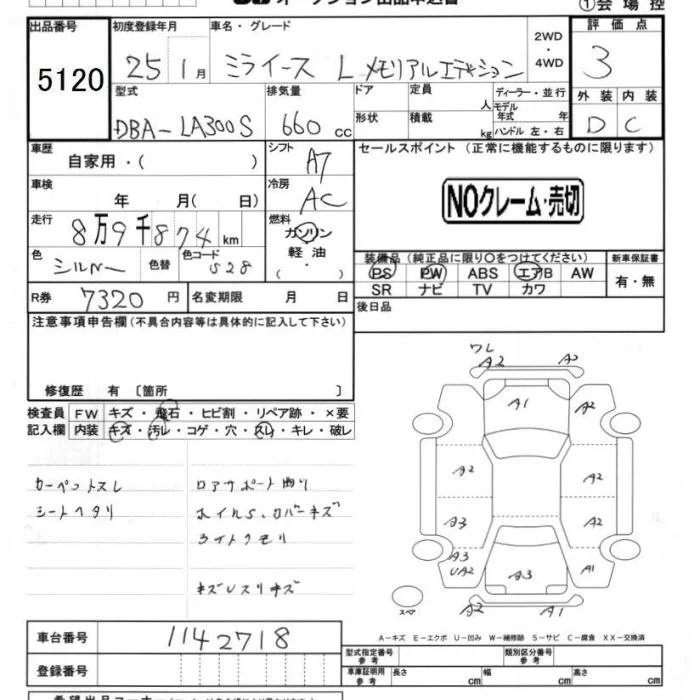 オークション出品申込書
①会場控
出品番号
5120
初度登録年月
25 1月
車名・グレード
ミライース L メモリアルエディション
2WD
・
4WD
評価点
3
外装 内装
D C
型式
DBA-LA300S
排気量
660 cc
ドア
形状
定員
人
積載
kg
ディーラー・並行
モデル
年式 年
ハンドル 左・右
車歴
自家用・( )
シフト
A7
セールスポイント (正常に機能するものに限ります)
NOクレーム・売切
車検
年 月( 日)
冷房
AC
走行
8万9千874km
燃料
ガソリン
軽油
・( )
色
シルバー
色替
色コード
S28
装備品 (純正品に限り〇をつけてください)
PS PW ABS エアB AW
SR ナビ TV カワ
新車保証書
有・無
R券
7320 円
名変期限 月 日
後日品
注意事項申告欄 (不具合内容等は具体的に記入して下さい)
修復歴 有 〔箇所 〕
検査員
記入欄
FW キズ・飛石・ヒビ割・リペア跡・×要
内装 キズ・汚レ・コゲ・穴・スレ・キレ・破レ
カーペットスレ
シートヘタリ
ロアサポート曲り
ホイルS、カバーキズ
ライトクモリ
キズUスリキズ
ワレ
A2
A1
A2
A2
A2
A3
A2
A3
UA2
A3
A1
A2
A1
スペア
A-キズ E-エクボ U-凹み W-補修跡 S-サビ C-腐食 XX-交換済
車台番号
1142718
登録番号
型式指定番号
参考
類別区分番号
参考
車庫証明用
参考
長さ cm
幅 cm
高さ cm